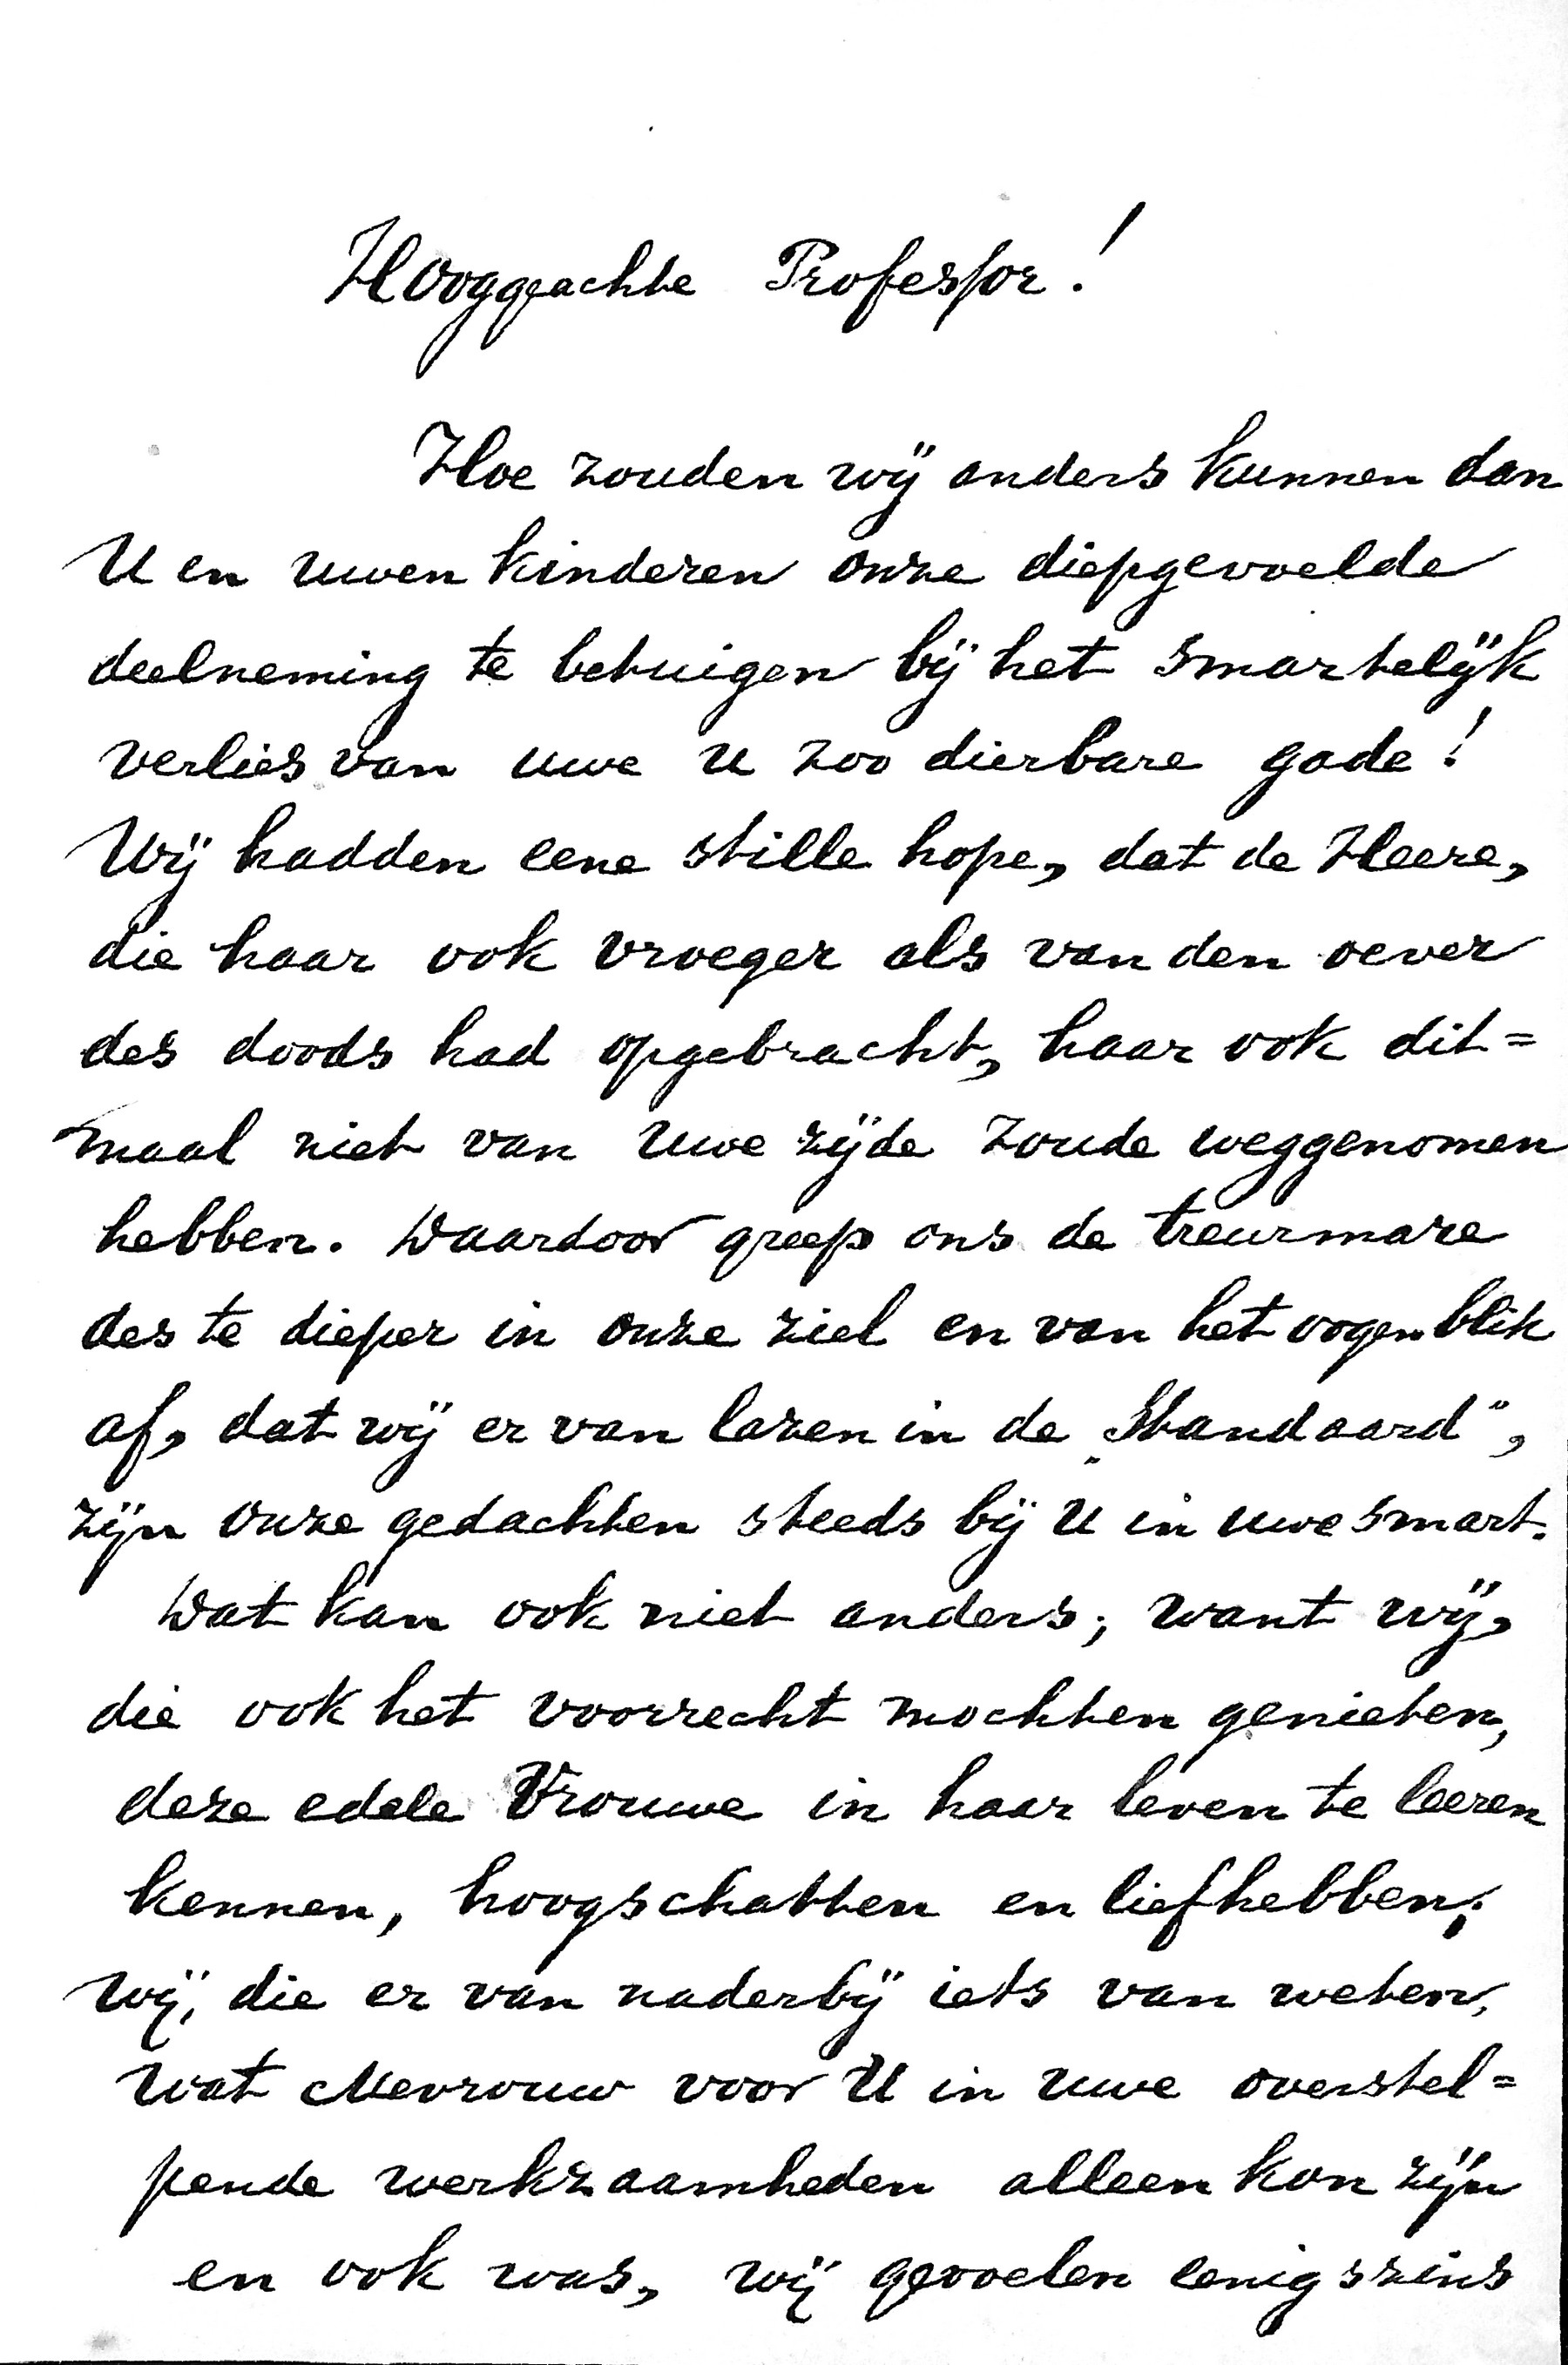 Hooggeachte Professor!
Hoe zouden wij anders kunnen dan
U en uwen kinderen onze diepgevoelde
deelneming te betuigen bij het smartelijk
verlies van uwe u zoo dierbare gade!
Wij hadden eene stille hope, dat de Heere,
die haar ook vroeger als van den oever
des doods had opgebracht, haar ook dit=
maal niet van uwe zijde zoude weggenomen
hebben. Daardoor greep ons de treurmare
des te dieper in onze ziel en van het oogenblik
af, dat wij er van lazen in de „Standaard",
zijn onze gedachten steeds bij U in uwe smart.
Dat kan ook niet anders; want wij,
die ook het voorrecht mochten genieten,
deze edele Vrouwe in haar leven te leeren
kennen, hoogschatten en liefhebben;
wij, die er van naderbij iets van weten,
wat Mevrouw voor U in uwe overstel=
pende werkzaamheden alleen kon zijn
en ook was, wij gevoelen eenigszins